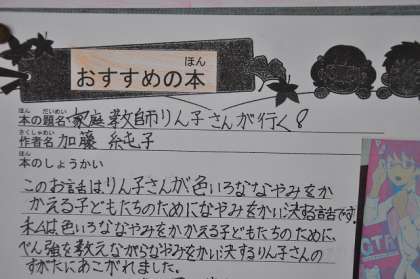 ほん
おすすめの本
ほん だいめい
本の題名 家庭教師りん子さんが行く!
さくしゃめい
作者名 加藤 純子
ほん
本のしょうかい
このお話はりん子さんが色いろななやみをか
かえる子どもたちのためになやみをかい決する話です。
私は色いろななやみをかかえる子どもたちのために、
べん強を教えながらなやみをかい決するりん子さんの
すがたにあこがれました。